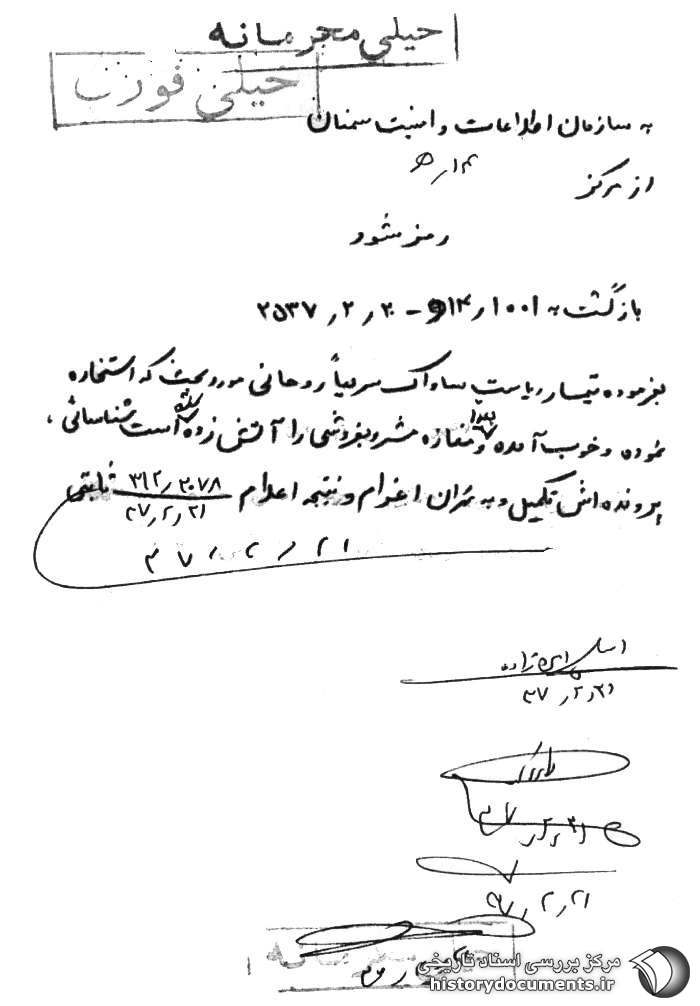 خیلی محرمانه
خیلی فوری
به سازمان اطلاعات و امنیت سمنان
از مرکز ۱۴ره
رمز شود
بازگشت به ۱۰۰۱ر۱۴ه - ۲۰ر۲ر۲۵۳۷
بفرموده تیمسار ریاست ساواک سریعاً روحانی مورد بحث که استخاره
نموده و خوب آمده و مغازه مشروبفروشی را آتش زده است شناسائی ،
پرونده‌اش تکمیل و به تهران اعزام و نتیجه اعلام ۳۱۲٫۲۰۷۸ ثابتی
۳۷٫۲٫۲۱
۳۷٫۲٫۲۱
۳۷٫۲٫۲۱
۳۷٫۲٫۲۱
۳۷٫۲٫۲۱
خیلی محرمانه
مرکز بررسی اسناد تاریخی
historydocuments.ir